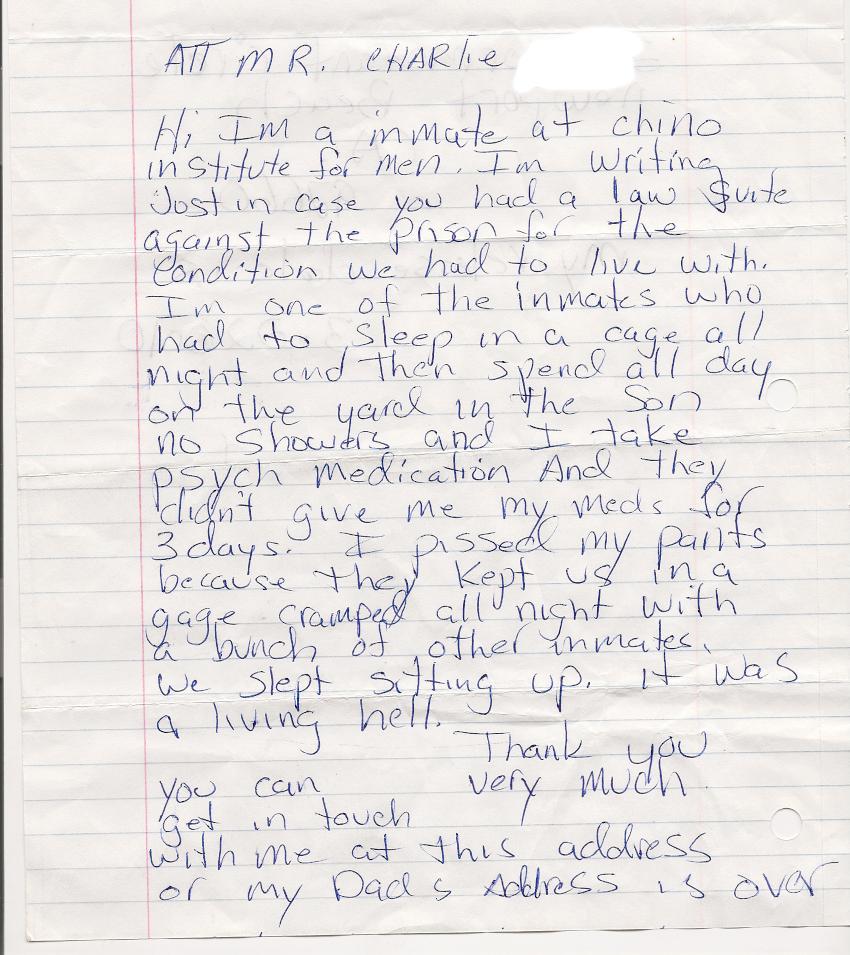 ATT MR. CHARLIE
Hi, Im a inmate at chino
institute for men. Im writing
Just in case you had a law suite
against the prison for the
condition we had to live with.
Im one of the inmates who
had to sleep in a cage all
night and then spend all day
on the yard in the Son
no showers and I take
psych medication And they
didn't give me my meds for
3 days. I pissed my pants
because they kept us in a
gage cramped all night with
a bunch of other inmates.
we slept sitting up. it was
a living hell.
Thank you
very much
you can
get in touch
with me at this address
or my Dads Address is over